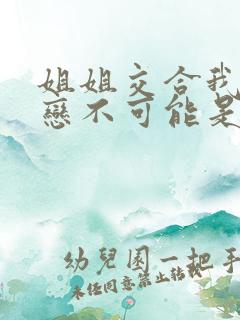 姐姐交合我
戀不可能是
幼兒園一把手
未任同意禁止轉載